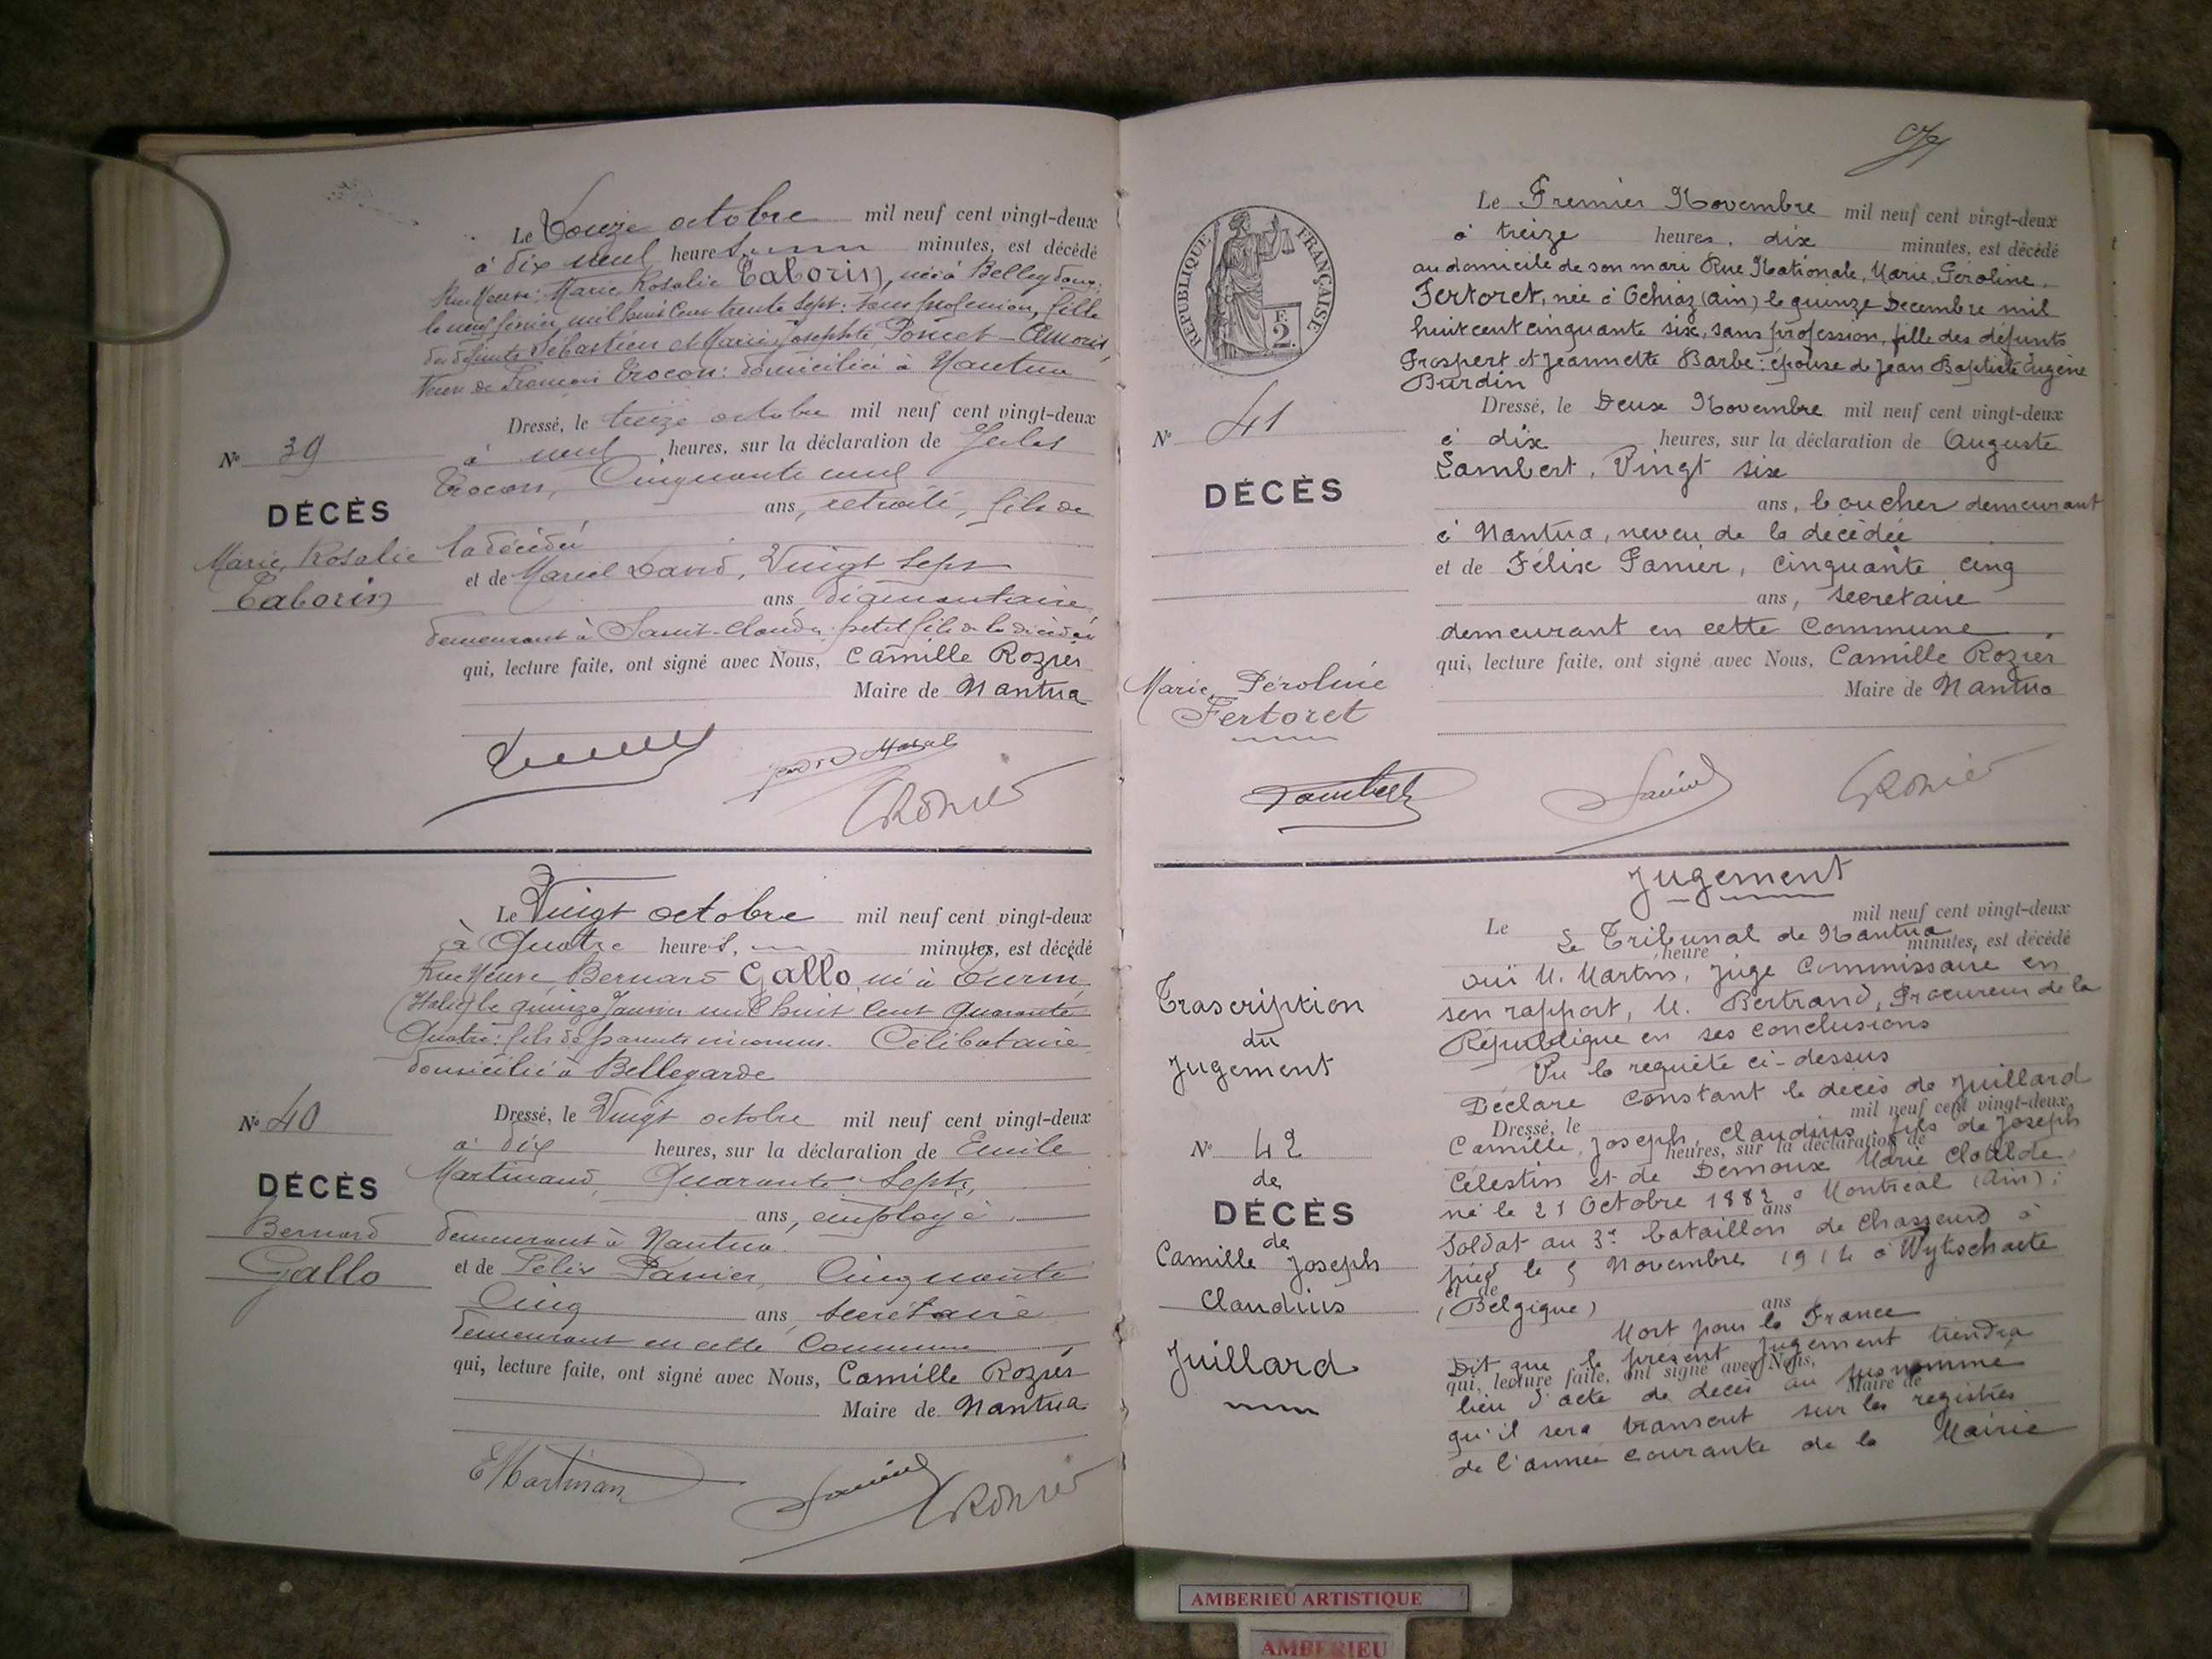 Le Douze octobre mil neuf cent vingt-deux
à dix neuf heures, minutes, est décédé
Rue Neuve: Marie Rosalie Taborin, née à Belleydoux
le neuf février mil huit cent trente sept: sans profession, fille
des défunts Sébastien et Marie Josephte Poncet-
Veuve de François Crocon: domiciliée à Nantua
Dressé, le treize octobre mil neuf cent vingt-deux
à neuf heures, sur la déclaration de Jules
Crocon, Cinquante neuf
ans, retraité, fils de
la décédée
et de Marcel David, Vingt sept
ans, diamantaire,
demeurant à Saint-Claude, petit fils de la décédée
qui, lecture faite, ont signé avec Nous, Camille Rozier
Maire de Nantua
N° 39
DÉCÈS
Marie Rosalie
Taborin
Le Vingt octobre mil neuf cent vingt-deux
à Quatre heures, minutes, est décédé
Rue Neuve, Bernard Gallo, né à Turin
(Italie) le quinze Janvier mil huit cent quarante
Quatre: fils de parents inconnus. Célibataire
domicilié à Bellegarde
Dressé, le Vingt octobre mil neuf cent vingt-deux
à dix heures, sur la déclaration de Emile
Martinand, Quarante Sept,
ans, employé
demeurant à Nantua
et de Félix Panier, Cinquante
Cinq ans, secrétaire
demeurant en cette Commune
qui, lecture faite, ont signé avec Nous, Camille Rozier
Maire de Nantua
N° 40
DÉCÈS
Bernard
Gallo
RÉPUBLIQUE FRANÇAISE
F.
2.
Le Premier Novembre mil neuf cent vingt-deux
à treize heures, dix minutes, est décédé
au domicile de son mari Rue Nationale, Marie, Péroline,
Fertoret, née à Ochiaz (Ain) le quinze Decembre mil
huit cent cinquante six, sans profession, fille des défunts
Prospert et Jeannette Barbe: épouse de Jean Baptiste Eugène
Burdin
Dressé, le Deux Novembre mil neuf cent vingt-deux
à dix heures, sur la déclaration de Auguste
Lambert, Vingt six
ans, boucher demeurant
à Nantua, neveu de la décédée
et de Félix Panier, cinquante cinq
ans, secretaire
demeurant en cette Commune
qui, lecture faite, ont signé avec Nous, Camille Rozier
Maire de Nantua
N° 41
DÉCÈS
Marie, Péroline
Fertoret
Jugement
Le mil neuf cent vingt-deux
Le Tribunal de Nantua
heure minutes, est décédé
ouï M. Martin, Juge Commissaire en
son rapport, M. Bertrand, Procureur de la
République en ses conclusions
Vu la requête ci-dessus
Déclare constant le décès de Juillard
Dressé, le mil neuf cent vingt-deux,
Camille, Joseph, Claudius, fils de Joseph
heures, sur la déclaration de
Célestin et de Demoux Marie Clotilde
né le 21 Octobre 1882 à Montreal (Ain):
ans
Soldat au 3e bataillon de Chasseurs à
pied le 5 Novembre 1914 à Wytschaete
et de
(Belgique) ans
Mort pour la France
Dit que le présent Jugement tiendra
qui, lecture faite, ont signé avec Nous,
lieu d'acte de decès au susnommé
Maire de
qu'il sera transcrit sur les registres
de l'année courante de la Mairie
Trascription
du
Jugement
N° 42
de
DÉCÈS
de
Camille Joseph
Claudius
Juillard
AMBERIEU ARTISTIQUE
AMBERIEU